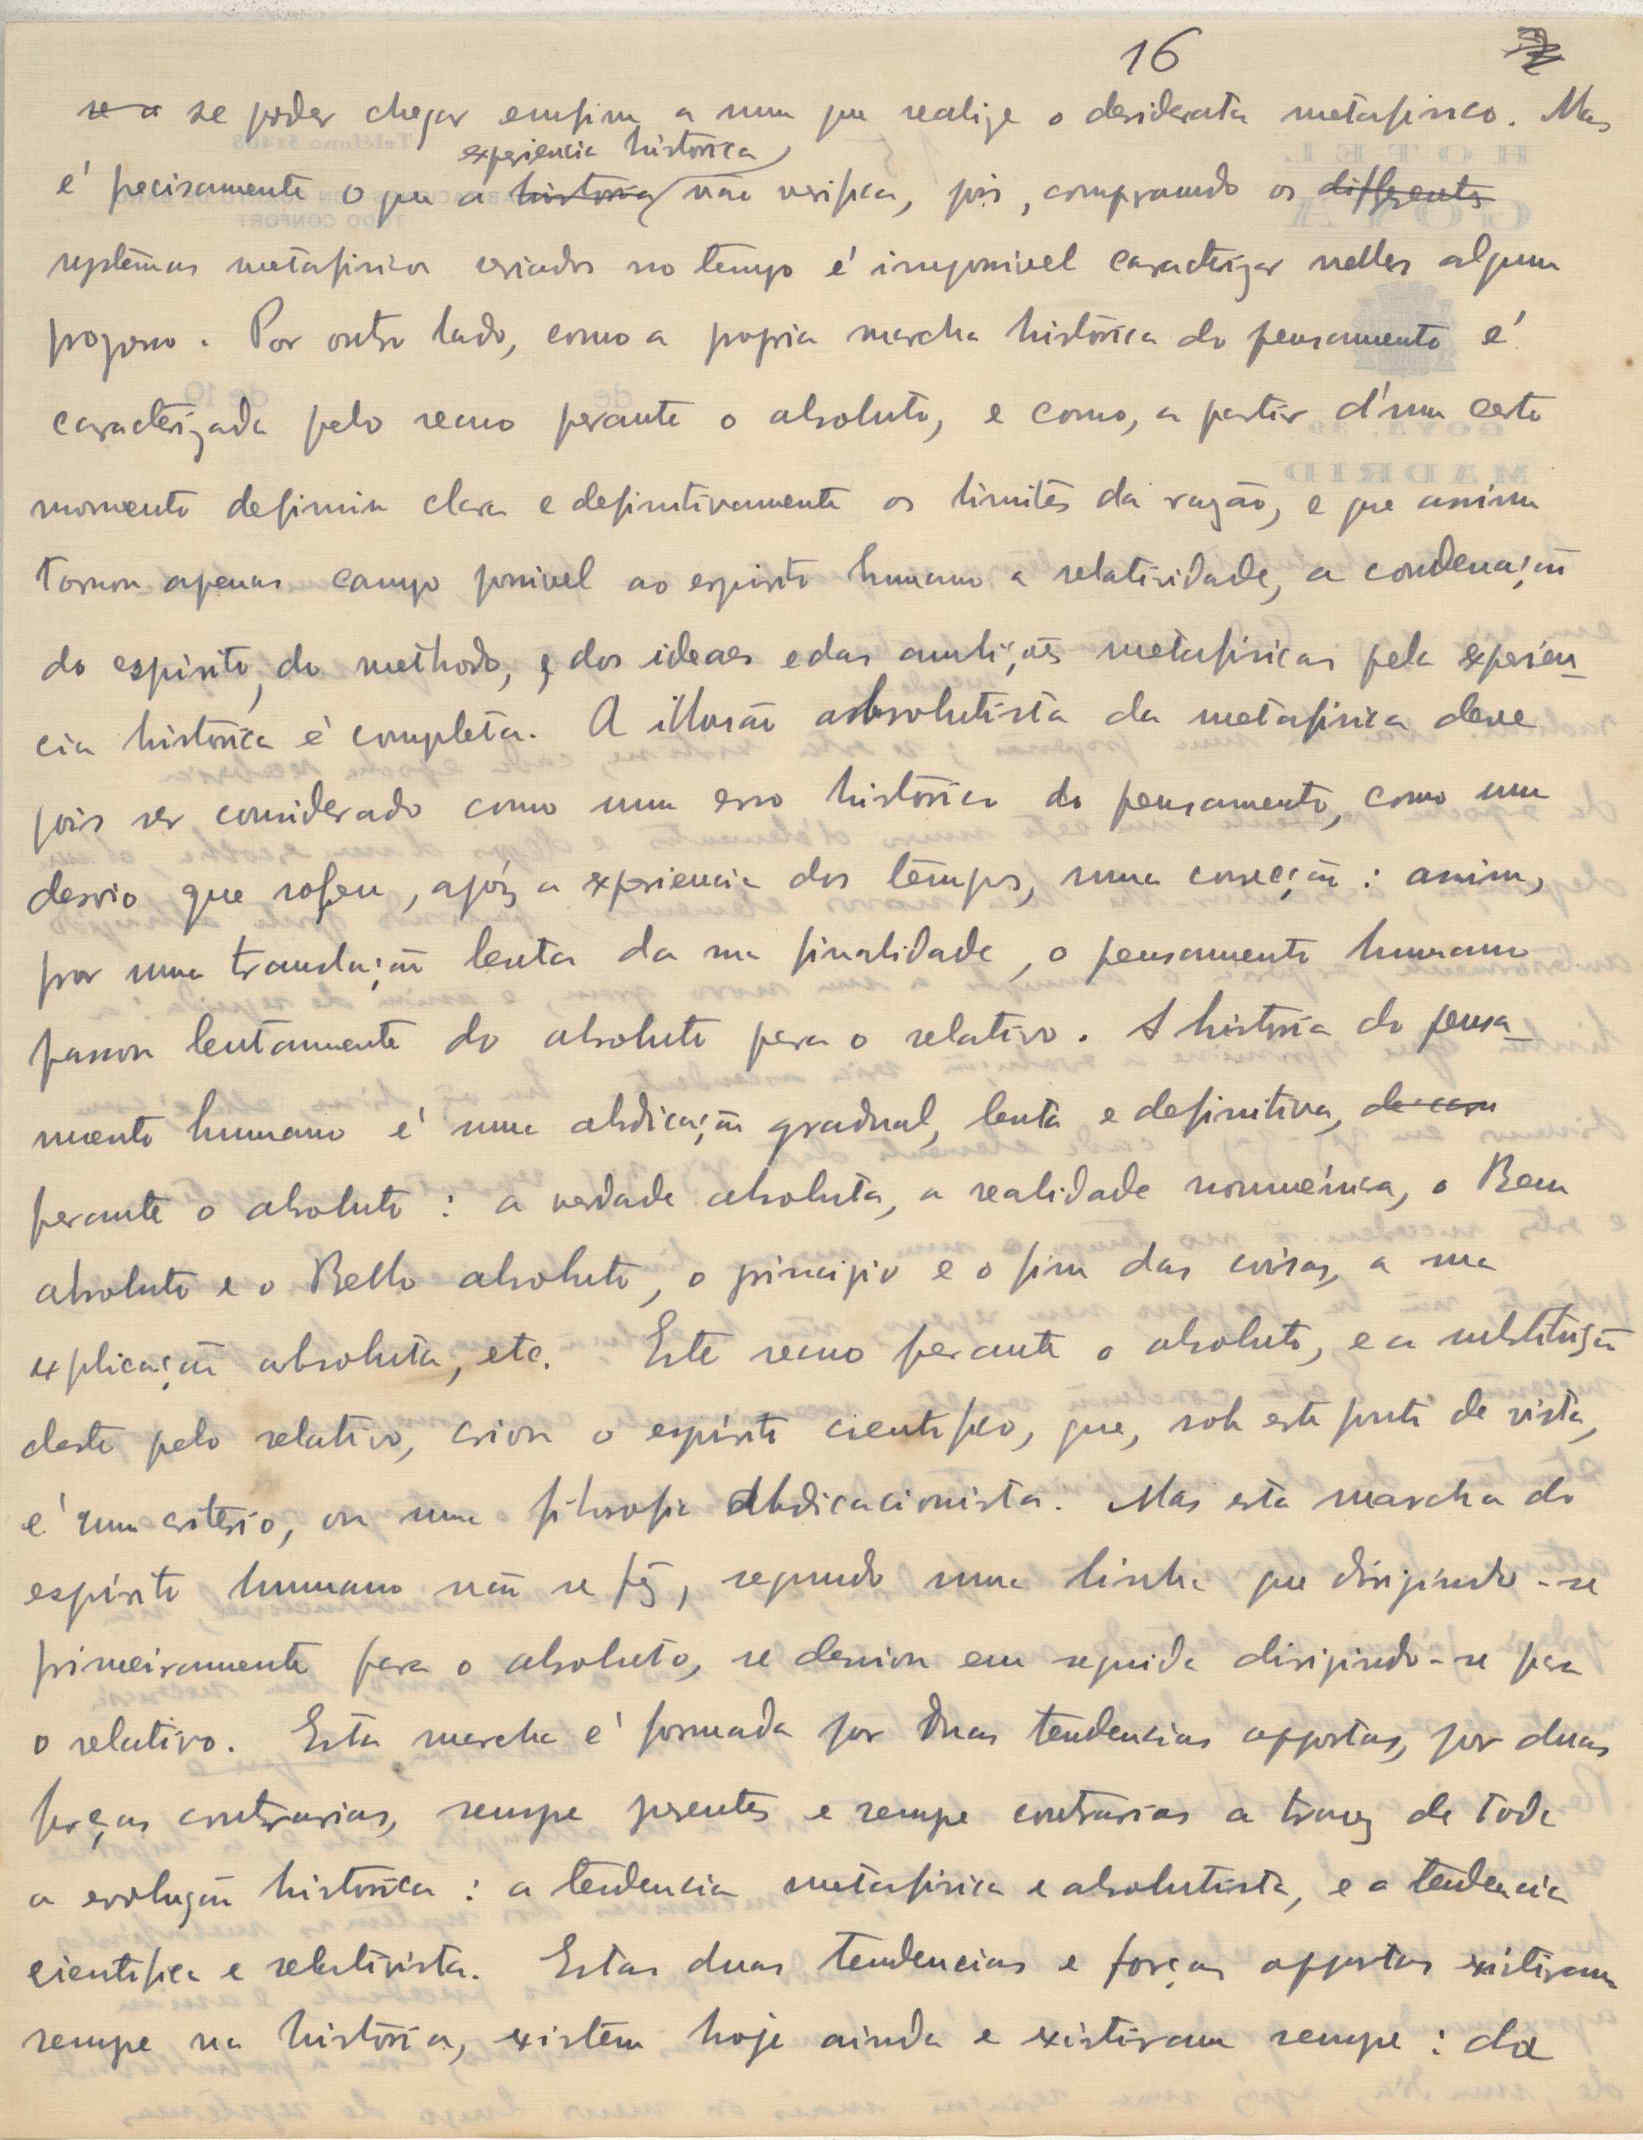 16
se a se poder chegar emfim a um que realize o desiderata metafisico. Mas
experiencia historica
é precisamente o que a historia não verifica, pois, comparando os differentes
systemas metafisicos criados no tempo é impossivel caracterizar nelles algum
progresso. Por outro lado, como a propria marcha histórica do pensamento é
caracterizada pelo recuo perante o absoluto, e como, a partir d'um certo
momento definiu clara e definitivamente os limites da razão, e que assim
tornou apenas campo possivel ao espirito humano a relatividade, a condenação
do espirito, do methodo, e dos ideaes e das ambições metafisicas pela experien-
cia histórica é completa. A illusão absolutista da metafisica deve
pois ser considerado como um erro histórico do pensamento, como um
desvio que sofreu, após a experiencia dos tempos, uma correcção: assim,
por uma translação lenta da sua finalidade, o pensamento humano
passou lentamente do absoluto para o relativo. A historia do pensa-
mento humano é uma abdicação gradual, lenta e definitiva,
perante o absoluto: a verdade absoluta, a realidade noumenica, o Bem
absoluto e o Bello absoluto, o principio e o fim das coisas, a sua
explicação absoluta, etc. Este recuo perante o absoluto, e a substituição
deste pelo relativo, criou o espirito cientifico, que, sob este ponto de vista,
é um critério, ou uma filosofia abdicacionista. Mas esta marcha do
espírito humano não se fez, segundo uma linha que dirigindo-se
primeiramente para o absoluto, se desviou em seguida dirigindo-se para
o relativo. Esta marcha é formada por duas tendencias oppostas, por duas
forças contrarias, sempre presentes e sempre contrarias a travez de toda
a evolução histórica: a tendencia metafisica e absolutista, e a tendencia
cientifica e relativista. Estas duas tendencias e forças oppostas existiram
sempre na história, existem hoje ainda e existiram sempre: da